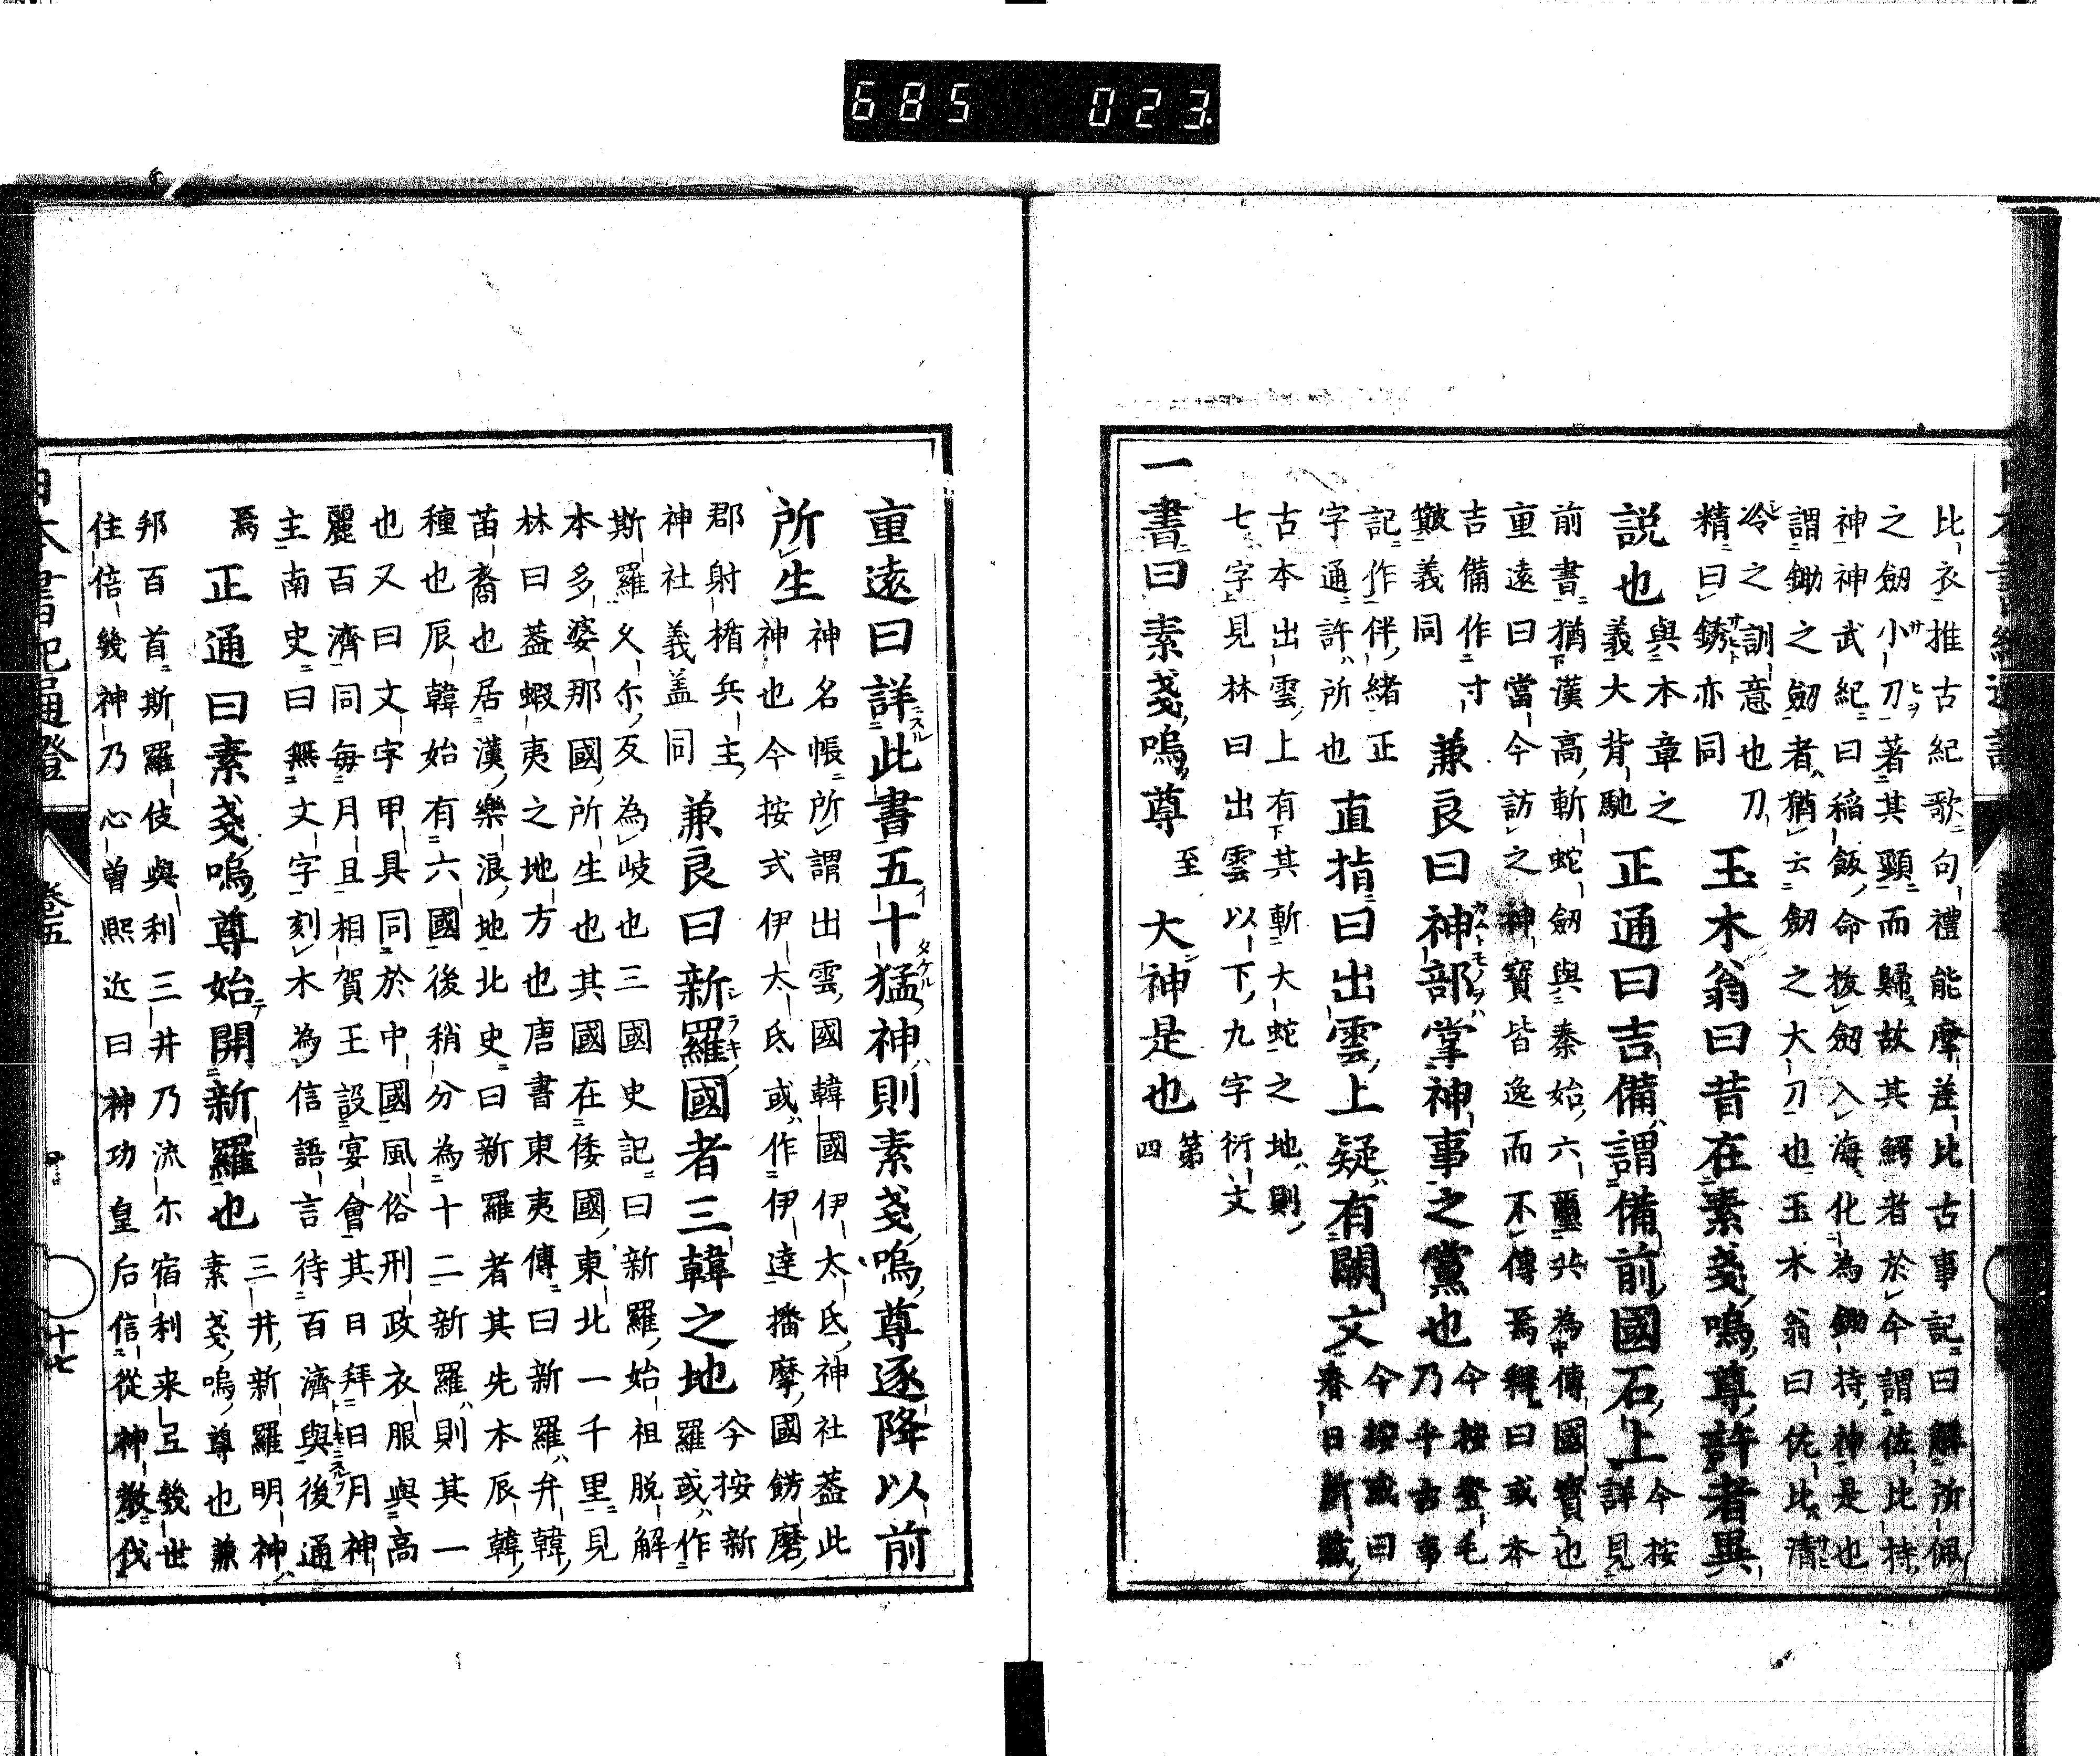 685 023
比衣推古紀歌句禮能摩差比古事記曰解所佩
之劒小刀著其頸而歸故其鰐者於今謂佐比持
神神武紀曰稲飯命抜劒入海化為鋤持神是也
謂鋤之劒者猶云劒之大刀也玉木翁曰佐比清
冷之訓意也刀
精曰銹亦同
玉木翁曰昔在素戔嗚尊許者異
説也
與本章之
義大背馳
正通曰吉備謂備前國石上
今按
詳見
前書猶漢高斬蛇劒與秦始六璽共為中傳國寳也
重遠曰當今訪之神寳皆逸而不傳焉釋曰或本
吉備作寸
簸義同
兼良曰神部掌神事之黨也
今按登毛
乃乎古事
記作伴緒正
字通許所也
直指曰出雲上疑有闕文
今按或曰
春日所藏
古本出雲上有其斬大蛇之地則
七字見林曰出雲以下九字衍文
一書曰素戔嗚尊至大神是也
第
四
重遠曰詳此書五十猛神則素戔嗚尊逐降以前
所生
神名帳所謂出雲國韓國伊太氐神社葢此
神也今按式伊太氐或作伊達播摩國餝磨
郡射楯兵主
神社義葢同
兼良曰新羅國者三韓之地
今按新
羅或作
斯羅久尓反為岐也三國史記曰新羅始祖脱解
本多婆那國所生也其國在倭國東北一千里見
林曰葢蝦夷之地方也唐書東夷傳曰新羅弁韓
苗裔也居漢樂浪地北史曰新羅者其先本辰韓
種也辰韓始有六國後稍分為十二新羅則其一
也又曰文字甲具同於中國風俗刑政衣服與高
麗百濟同毎月旦相賀王設宴會其日拜日月神
主南史曰無文字刻木為信語言待百濟與後通
焉
正通曰素戔嗚尊始開新羅也
三井新羅明神
素戔嗚尊也兼
邦百首斯羅伎與利三井乃流尓宿利来弖幾世
住倍幾神乃心曽熙近曰神功皇后信從神教伐
日本書紀通證
卷五
十七